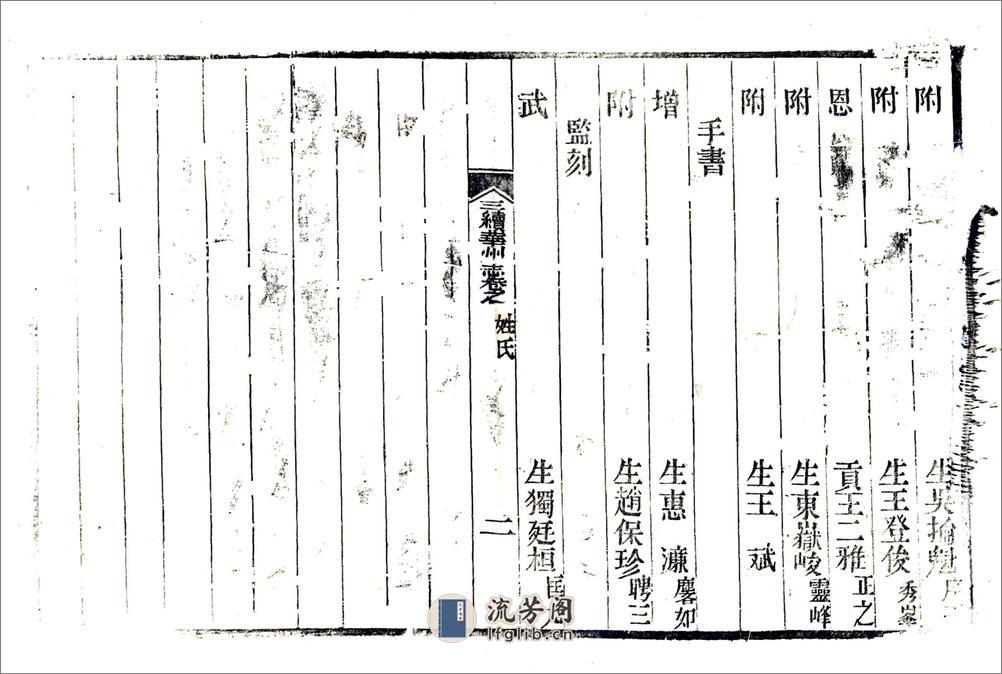 附生吳掄
附生王登俊秀峯
恩貢王二雅正之
附生東嶽峻靈峰
附生王斌
手書
增生惠濂麐如
附生趙保珍聘三
監刻
武生獨廷桓
三續華州志卷之 姓氏 二
流芳阁
lfglib.cn